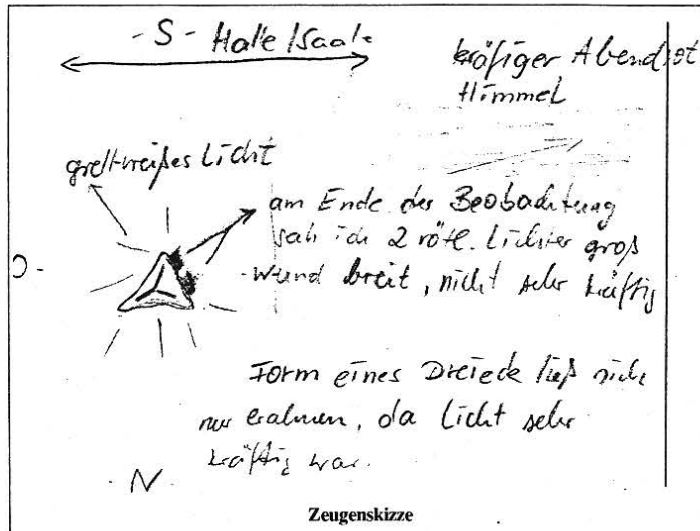 - S - Halle/Saale
kräftiger Abendrot
Himmel
grell-weißes Licht
am Ende der Beobachtung
sah ich 2 rötl. Lichter groß
und breit, nicht sehr kräftig
O -
Form eines Dreieck ließ sich
nur erahnen, da Licht sehr
kräftig war.
- N -
Zeugenskizze